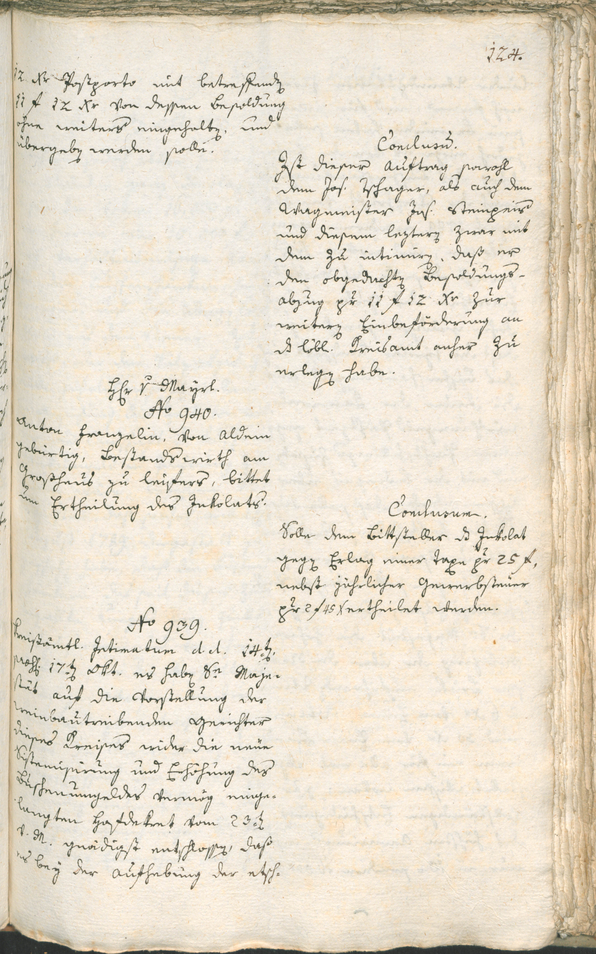 124.
12 Xr Postporto mit betreffendn
11 f 12 Xr von dessen Besoldung
ohne weiters eingehaltn, und
übergebn werden solle.
Conclusum.
Ist dieser Auftrag sowohl
dem Jos. Zschager, als auch dem
Wagmeister Jos. Steinpeis
und diesem leztern zwar mit
dem zu intimirn, daß er
den obgedachtn Besoldungs-
abzug pr 11 f 12 Xr zur
weitern Einbeförderung an
d löbl. Kreisamt anher zu
erlegn habe.
Hr v Mayrl.
No 940.
Anton Franzelin, von Aldein
gebürtig, Bestandswirth am
Großhaus zu Leifers, bittet
um Ertheilung des Inkolats.
Conclusum.
Solle dem Bittsteller d Inkolat
gegn Erlag einer Taxe pr 25 f,
nebst jährlicher Gewerbsteuer
pr 2 f 45 X ertheilet werden.
No 939.
Kreisämtl. Intimatum d.d. 14tn
17tn Okt. es habn Se Maje-
stät auf die Vorstellung der
weinbautreibenden Gerichter
dieses Kreises wider die neue
Sistemisirung und Erhöhung des
Buschenumgeldes vermög einge-
langten Hofdekret vom 23tn
v. M. gnädigst entschlossn, daß
es bey der Aufhebung der etsch-